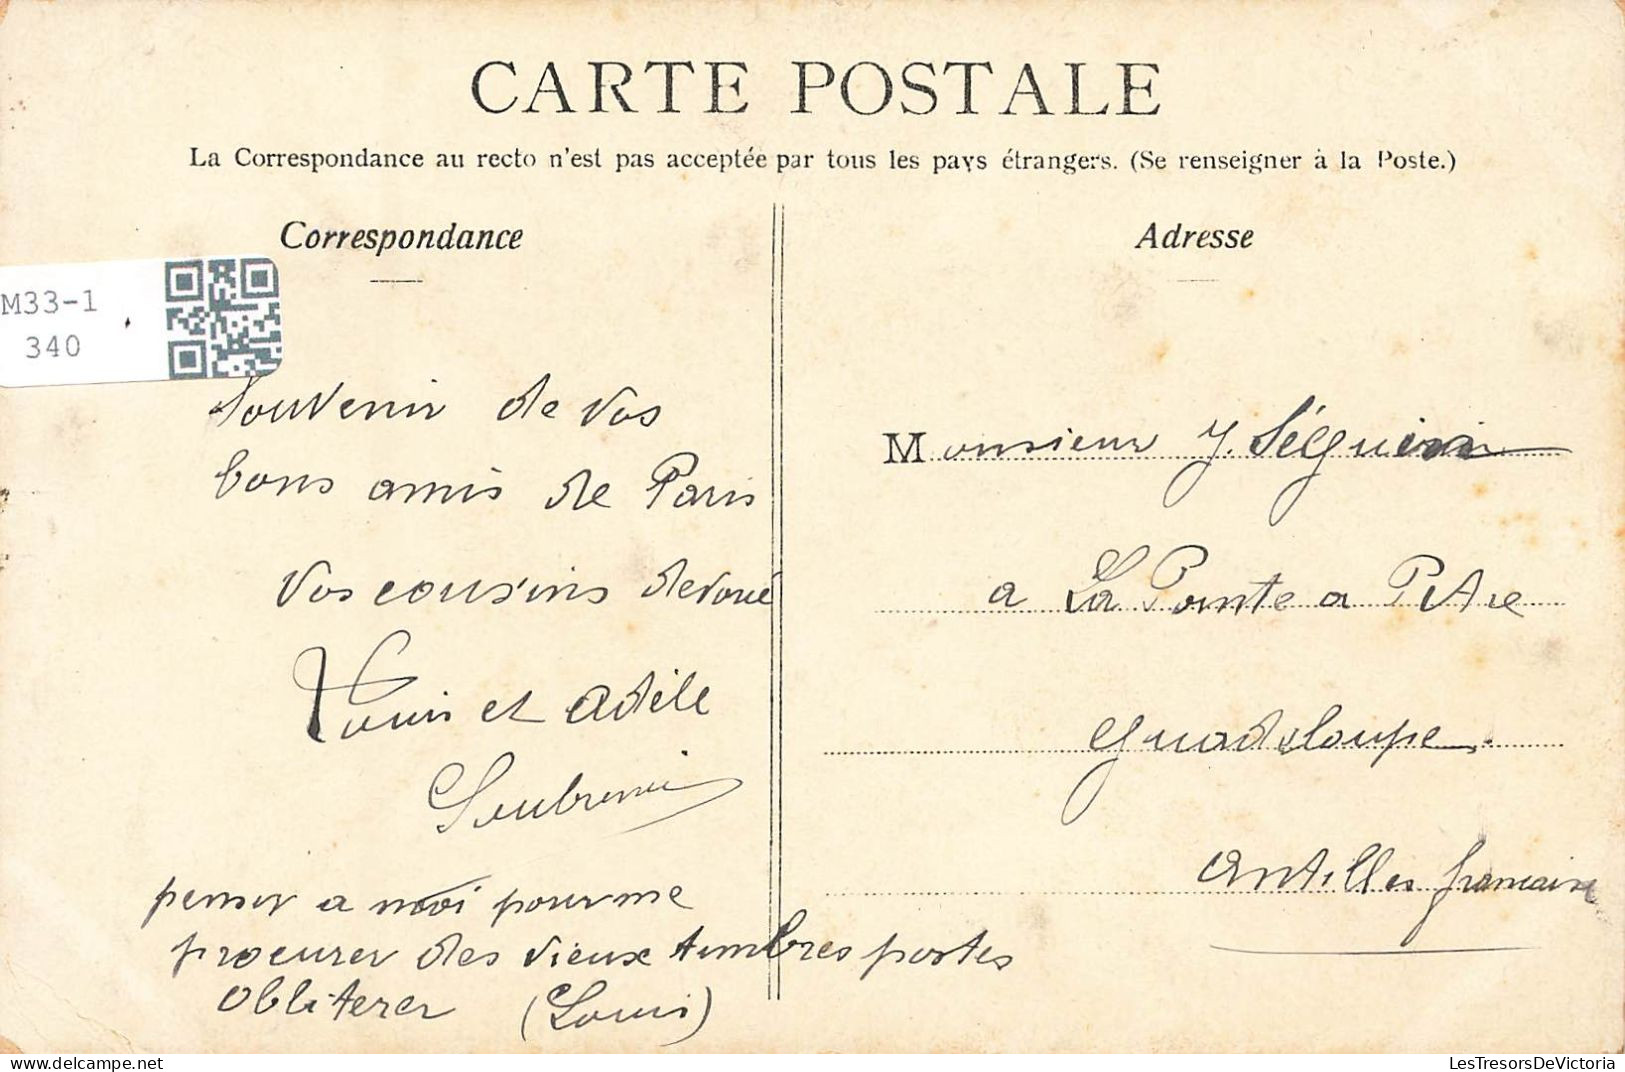 CARTE POSTALE
La Correspondance au recto n'est pas acceptée par tous les pays étrangers. (Se renseigner à la Poste.)
Correspondance
M33-1
340
Souvenir de vos
bons amis de Paris
vos cousins devoué
Louis et Adèle
penser a moi pour me
procurer des vieux timbres postes
obliterer (Louis)
Adresse
Monsieur J. Séguin
a La Pointe a Pitre
Guadeloupe.
Antilles française
LesTresorsDeVictoria